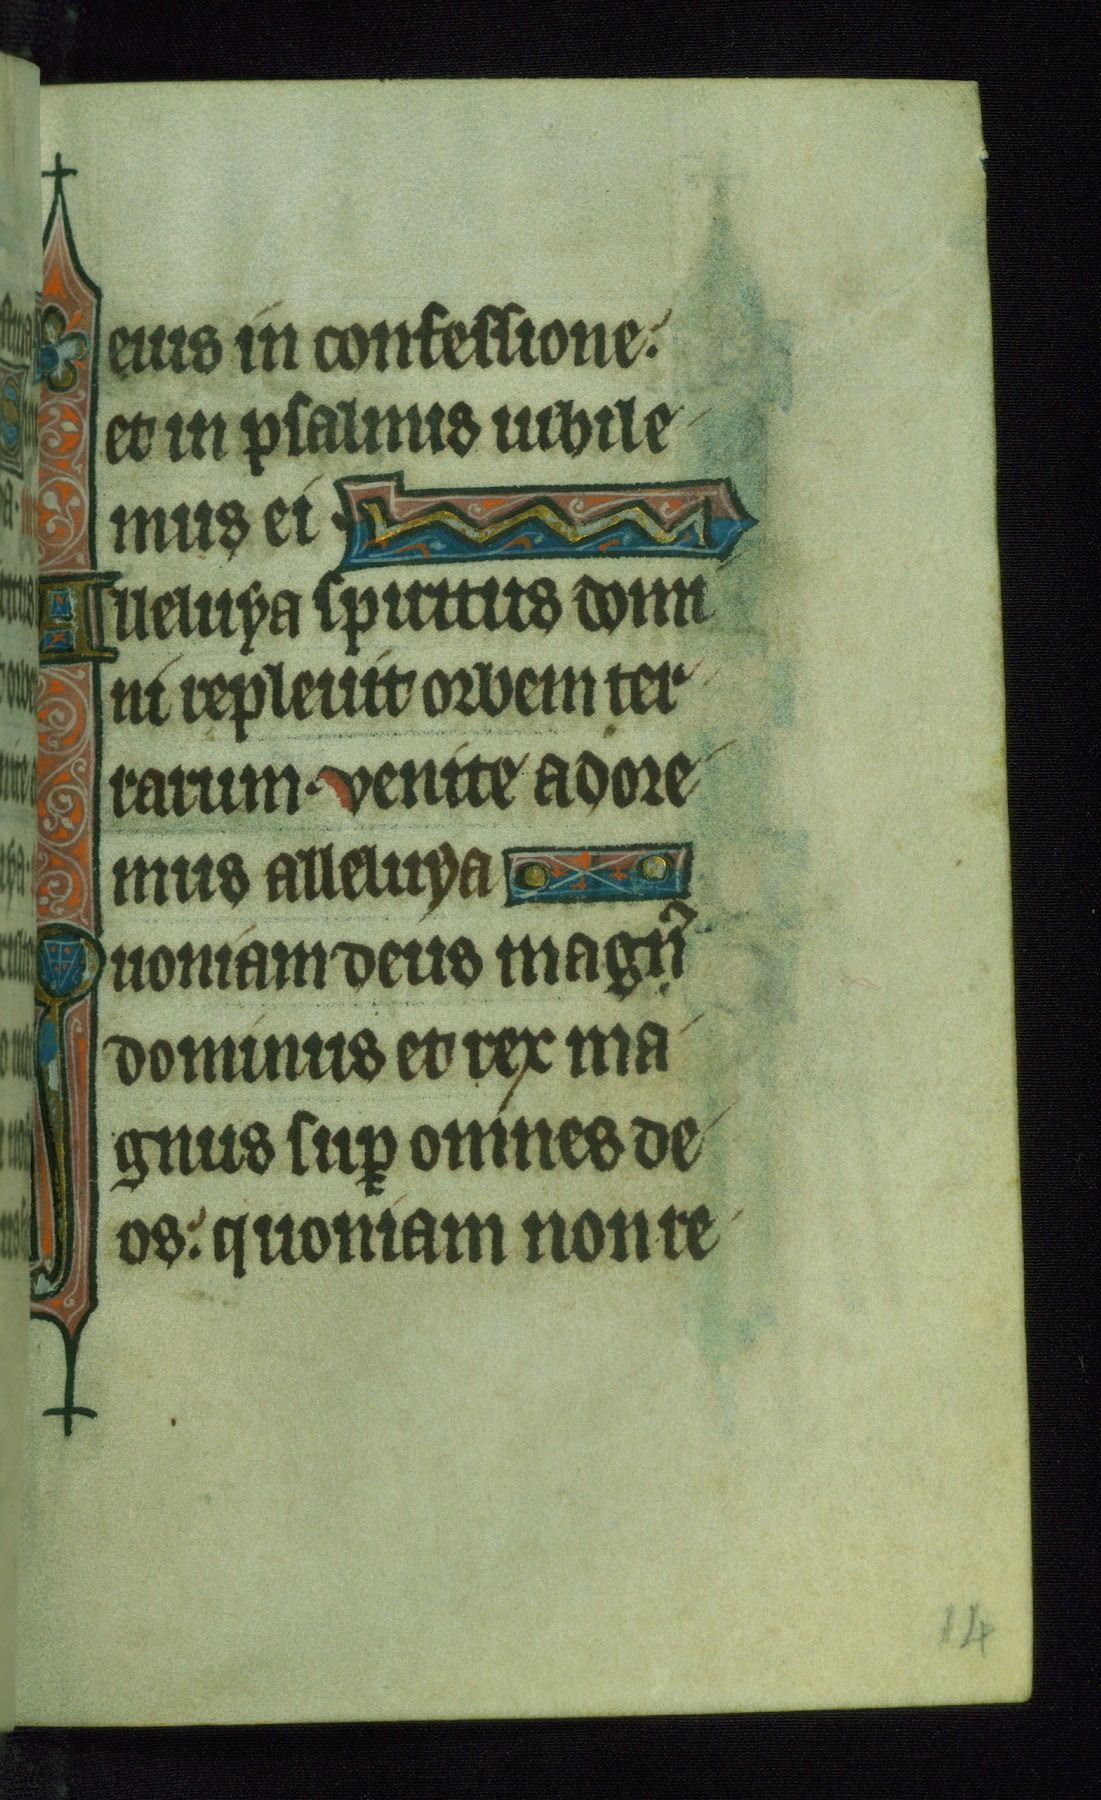 eius in confessione.
et in psalmis iubile
mus ei.
Alleluya spiritus domi
ni repleuit orbem ter
rarum. venite adore
mus alleluya
Quoniam deus magn᷒
dominus et rex ma
gnus suꝑ omnes de
os. quoniam non re
14